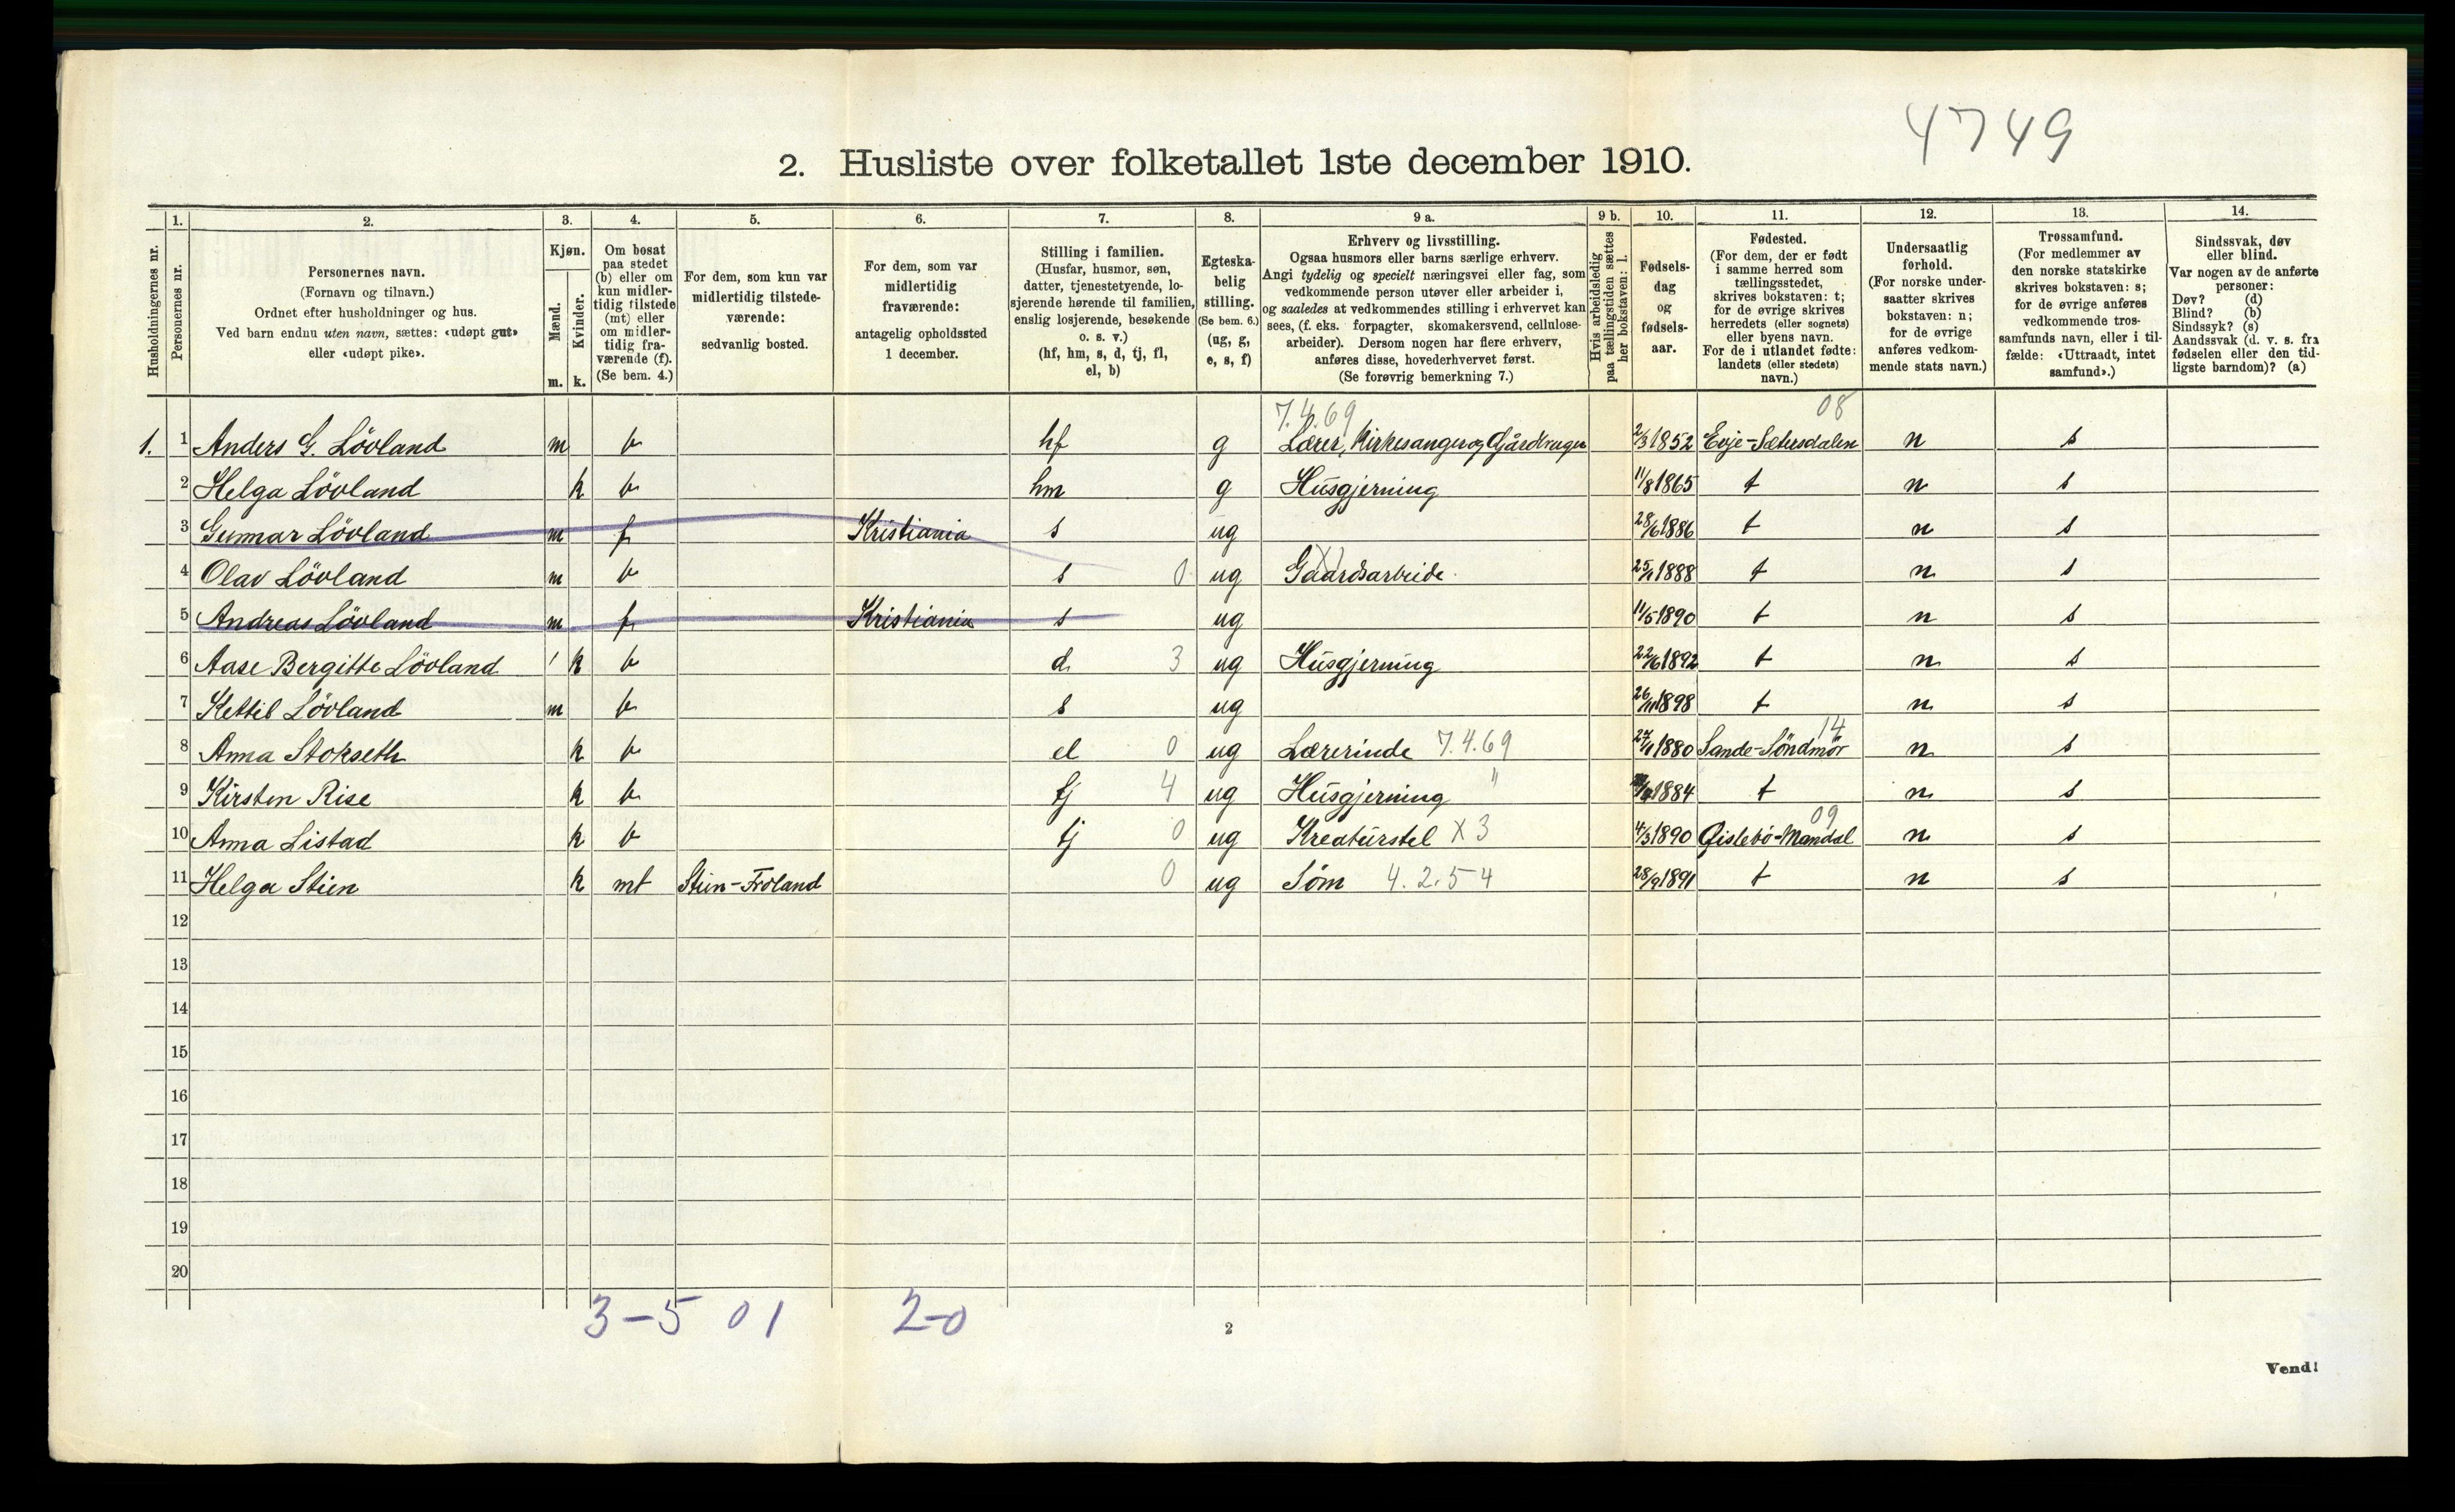 4749
2. Husliste over folketallet 1ste december 1910.
Husholdningernes nr.
1. Personernes nr.
2. Personernes navn. (Fornavn og tilnavn.) Ordnet efter husholdninger og hus. Ved barn endnu uten navn, sættes: «udøpt gut» eller «udøpt pike».
3. Kjøn. Mænd. m. Kvinder. k.
4. Om bosat paa stedet (b) eller om kun midler-tidig tilstede (mt) eller om midler-tidig fra-værende (f). (Se bem. 4.)
5. For dem, som kun var midlertidig tilstede-værende: sedvanlig bosted.
6. For dem, som var midlertidig fraværende: antagelig opholdssted 1 december.
7. Stilling i familien. (Husfar, husmor, søn, datter, tjenestetyende, lo-sjerende hørende til familien, enslig losjerende, besøkende o. s. v.) (hf, hm, s, d, tj, fl, el, b)
8. Egteska-belig stilling. (Se bem. 6.) (ug, g, e, s, f)
9 a. Erhverv og livsstilling. Ogsaa husmors eller barns særlige erhverv. Angi tydelig og specielt næringsvei eller fag, som vedkommende person utøver eller arbeider i, og saaledes at vedkommendes stilling i erhvervet kan sees, (f. eks. forpagter, skomakersvend, cellulose-arbeider). Dersom nogen har flere erhverv, anføres disse, hovederhvervet først. (Se forøvrig bemerkning 7.)
9 b. Hvis arbeidsledig paa tællingstiden sættes her bokstaven: l.
10. Fødsels-dag og fødsels-aar.
11. Fødested. (For dem, der er født i samme herred som tællingsstedet, skrives bokstaven: t; for de øvrige skrives herredets (eller sognets) eller byens navn. For de i utlandet fødte: landets (eller stedets) navn.)
12. Undersaatlig forhold. (For norske under-saatter skrives bokstaven: n; for de øvrige anføres vedkom-mende stats navn.)
13. Trossamfund. (For medlemmer av den norske statskirke skrives bokstaven: s; for de øvrige anføres vedkommende tros-samfunds navn, eller i til-fælde: «Uttraadt, intet samfund».)
14. Sindssvak, døv eller blind. Var nogen av de anførte personer: Døv? (d) Blind? (b) Sindssyk? (s) Aandssvak (d. v. s. fra fødselen eller den tid-ligste barndom)? (a)
7.4.69 08
1. 1 Anders G. Lövland m b hf g Lærer, Kirkesanger og Gårdbruger 2/3 1852 Evje-Sætersdalen n s
2 Helga Lövland k b hm g Husgjerning 11/8 1865 t n s
3 Gunnar Lövland m f Kristiania s ug 28/6 1886 t n s
4 Olav Lövland m b s 0 ug Gaardsarbeide 25/1 1888 t n s
5 Andreas Lövland m f Kristiania s ug 11/5 1890 t n s
6 Aase Bergitte Lövland k b d 3 ug Husgjerning 22/6 1892 t n s
7 Kettil Lövland m b s ug 26/11 1898 t n s
14
8 Anna Stokseth k b el 0 ug Lærerinde 7.4.69 1880 Sande-Söndmör n s
9 Kirsten Rise k b tj 4 ug Husgjerning " 1884 t n s
09
10 Anna Listad k b tj 0 ug Kreaturstel X 3 4/3 1890 Øislebö-Mandal n s
11 Helga Stien k mt Stien-Froland 0 ug Söm 4.2.54 28/9 1891 t n s
12
13
14
15
16
17
18
19
20
3-5 01 2-0
2
Vend!